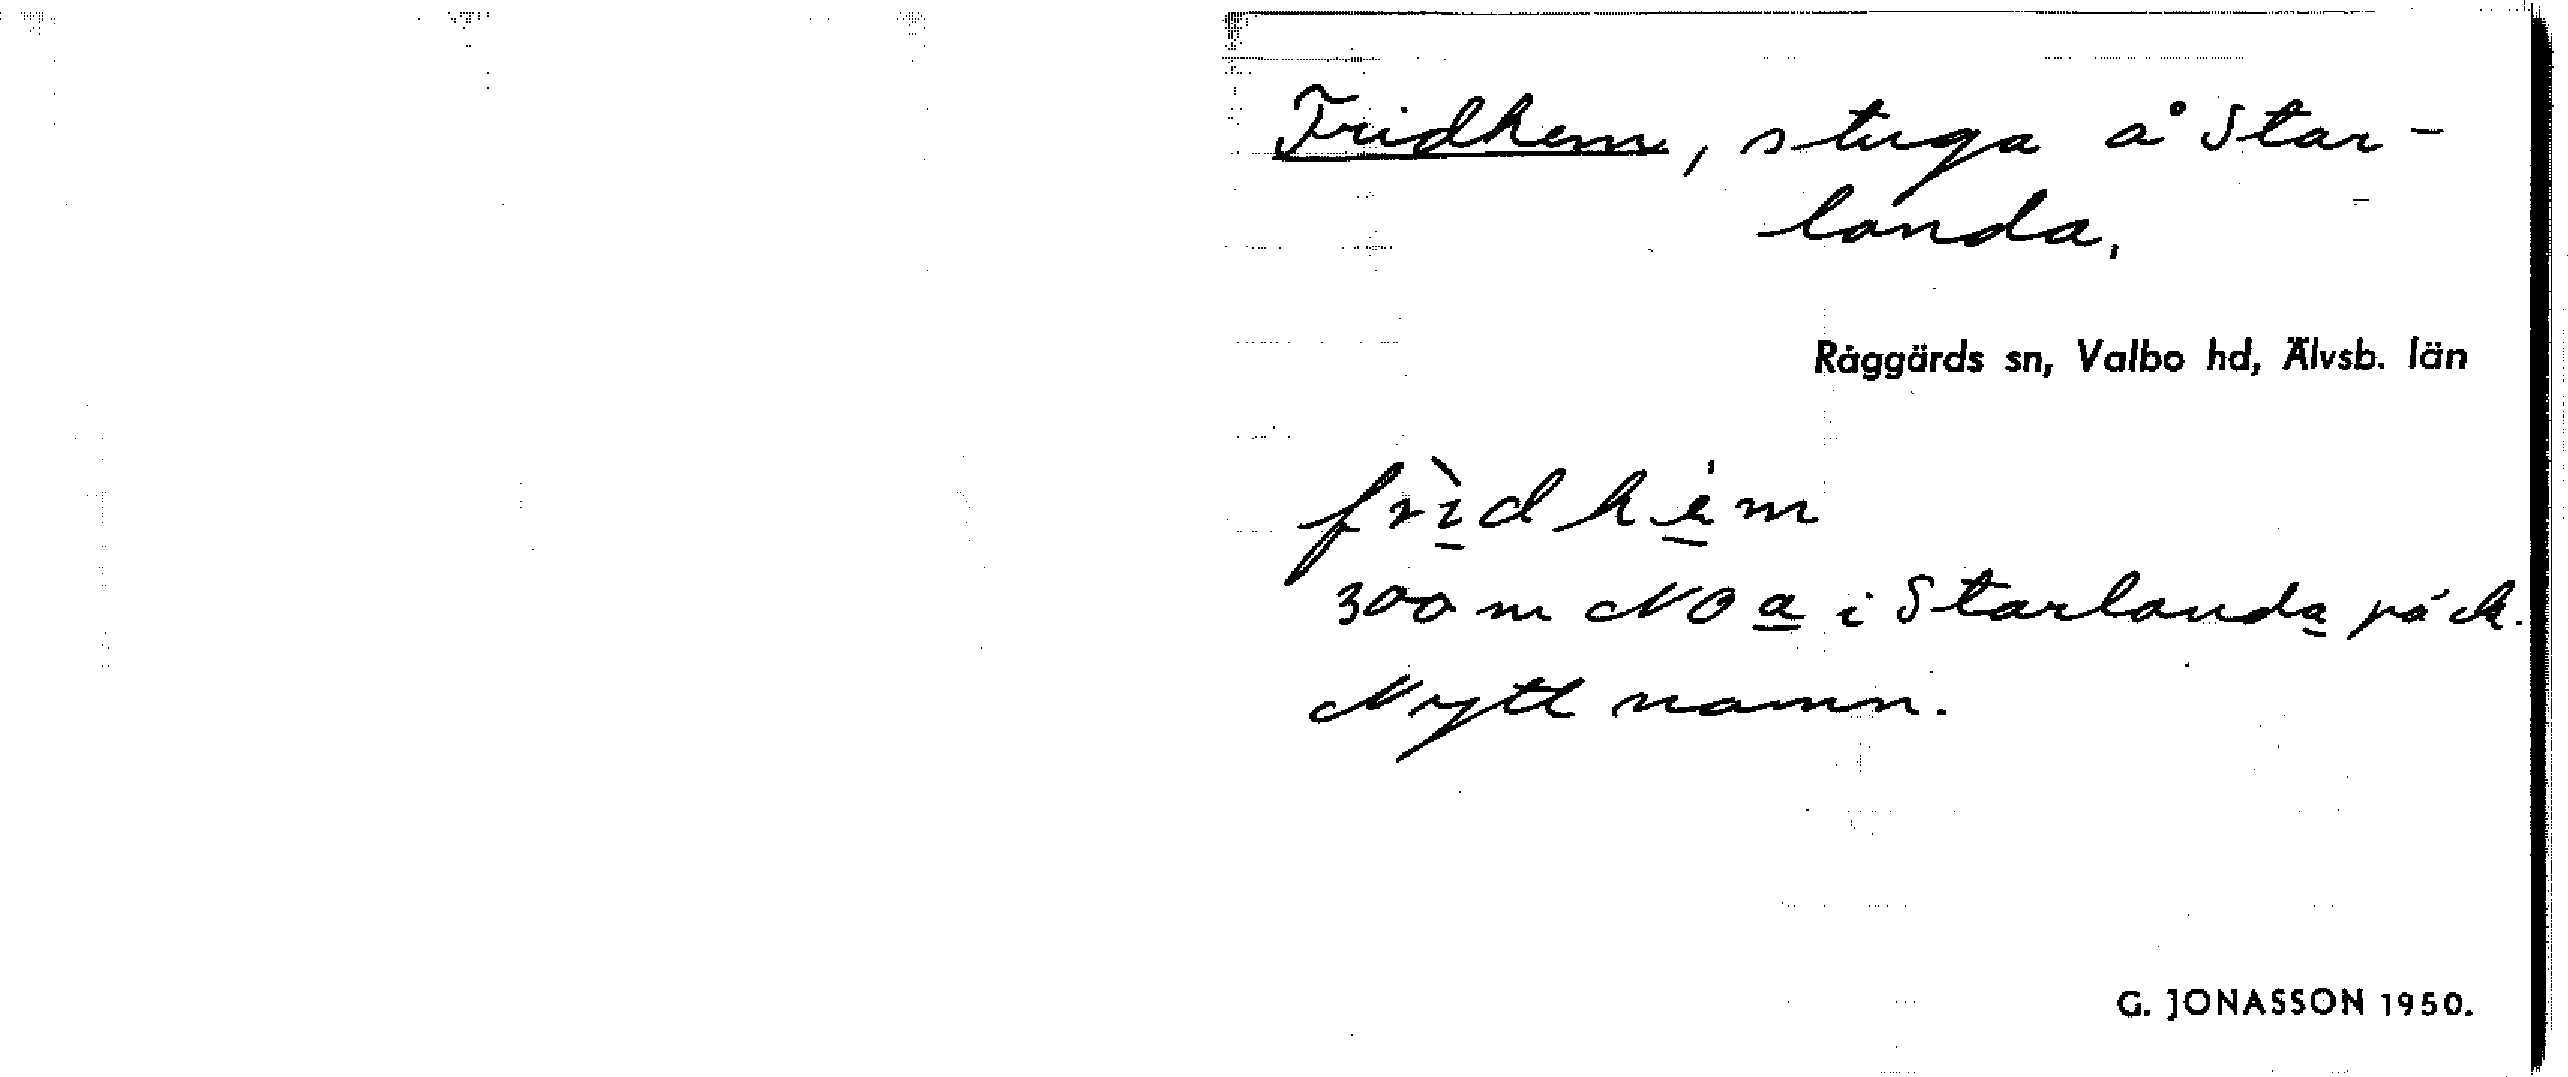 Fridhem, stuga å Star-
landa,
Råggärds sn, Valbo hd, Älvsb. län
frìdhèm
300 m NO a i Starlanda på ek.
Nytt namn.
G. JONASSON 1950.